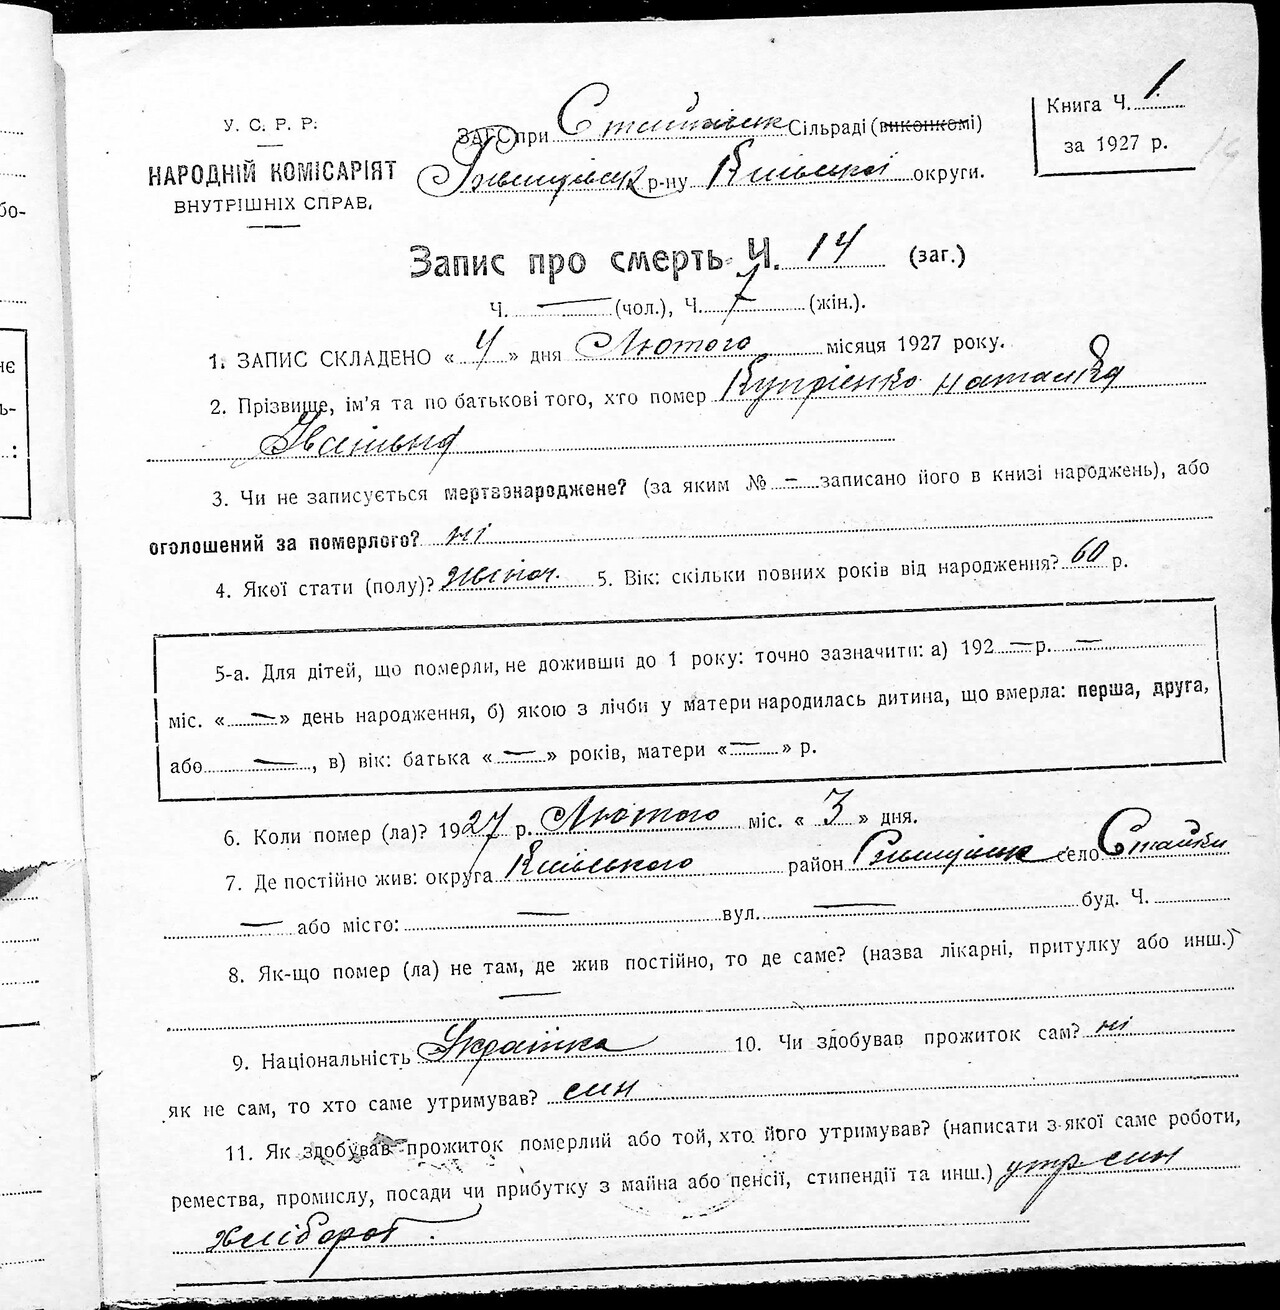 У. С. Р. Р.
НАРОДНІЙ КОМІСАРІЯТ
ВНУТРІШНІХ СПРАВ.
ЗАГС при Стайківськ Сільраді (виконкомі)
Ржищівськ р-ну Київської округи.
Книга Ч. 1
за 1927 р.
Запис про смерть Ч. 14 (заг.)
Ч. — (чол.), Ч. 7 (жін.).
1. ЗАПИС СКЛАДЕНО « 4 » дня Лютого місяця 1927 року.
2. Прізвище, ім'я та по батькові того, хто помер Купрієнко наталка
Іванівна
3. Чи не записується мертвонароджене? (за яким № — записано його в книзі народжень), або
оголошений за померлого? ні
4. Якої стати (полу)? жіноч. 5. Вік: скільки повних років від народження? 60 р.
5-а. Для дітей, що померли, не доживши до 1 року: точно зазначити: а) 192 — р. —
міс. « — » день народження, б) якою з лічби у матери народилась дитина, що вмерла: перша, друга,
або —, в) вік: батька « — » років, матери « — » р.
6. Коли помер (ла)? 1927 р. Лютого міс. « 3 » дня.
7. Де постійно жив: округа Київського район Ржищівськ село Стайки
— або місто: — вул. — буд. Ч.
8. Як-що помер (ла) не там, де жив постійно, то де саме? (назва лікарні, притулку або инш.)
—
9. Національність Українка 10. Чи здобував прожиток сам? ні
як не сам, то хто саме утримував? син
11. Як здобував прожиток померлий або той, хто його утримував? (написати з якої саме роботи,
ремества, промислу, посади чи прибутку з майна або пенсії, стипендії та инш.) утр син
хлібороб.